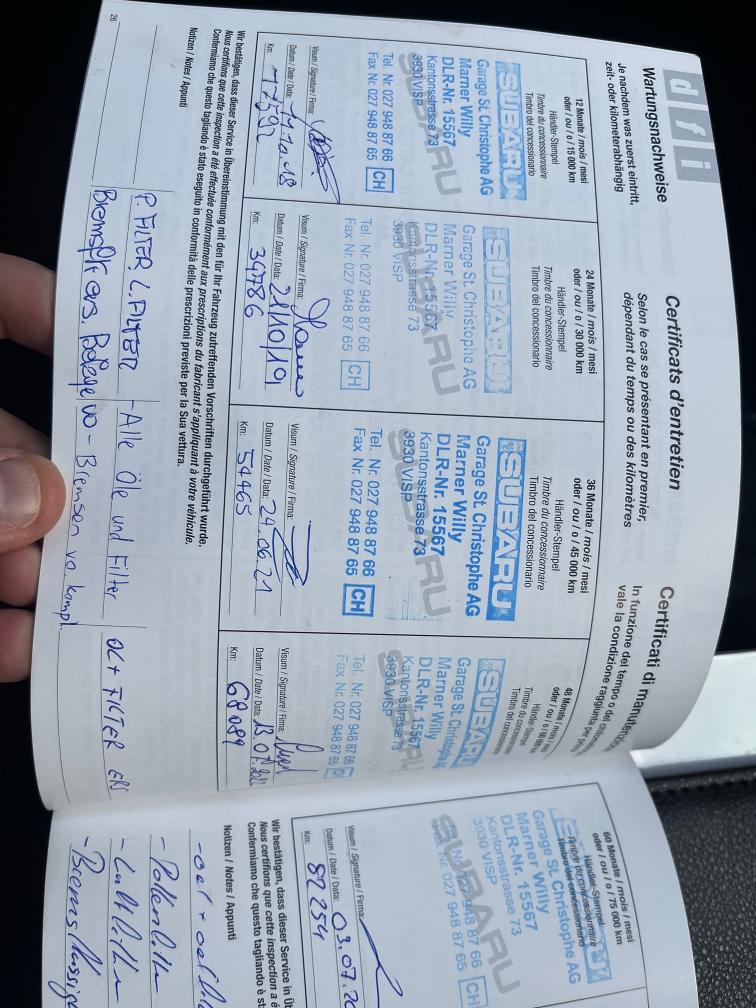 d f i
Wartungsnachweise
Je nachdem was zuerst eintritt,
zeit- oder kilometerabhängig
Certificats d'entretien
Selon le cas se présentant en premier,
dépendant du temps ou des kilomètres
Certificati di
In funzione del tempo o dei
vale la condizione raggiunta per
12 Monate / mois / mesi
oder / ou / o / 15 000 km
Händler-Stempel
Timbre du concessionnaire
Timbro del concessionario
SUBARU
Garage St. Christophe AG
Marner Willy
DLR-Nr. 15567
Kantonsstrasse 73
3930 VISP
SUBARU
Tel. Nr. 027 948 87 66
Fax Nr. 027 948 87 65 CH
Visum / Signature / Firma:
Datum / Date / Data:
Km: 17592
24 Monate / mois / mesi
oder / ou / o / 30 000 km
Händler-Stempel
Timbre du concessionnaire
Timbro del concessionario
SUBARU
Garage St. Christophe AG
Marner Willy
DLR-Nr. 15567
Kantonsstrasse 73
3930 VISP
SUBARU
Tel. Nr. 027 948 87 66
Fax Nr. 027 948 87 65 CH
Visum / Signature / Firma:
Datum / Date / Data: 21/10/19
Km: 34786
36 Monate / mois / mesi
oder / ou / o / 45 000 km
Händler-Stempel
Timbre du concessionnaire
Timbro del concessionario
SUBARU
Garage St. Christophe AG
Marner Willy
DLR-Nr. 15567
Kantonsstrasse 73
3930 VISP
SUBARU
Tel. Nr. 027 948 87 66
Fax Nr. 027 948 87 65 CH
Visum / Signature / Firma:
Datum / Date / Data: 24.06.21
Km: 54465
48 Monate / mois / mesi
oder / ou / o / 60 000 km
Händler-Stempel
Timbre du concessionnaire
Timbro del concessionario
SUBARU
Garage St. Christophe AG
Marner Willy
DLR-Nr. 15567
Kantonsstrasse 73
3930 VISP
SUBARU
Tel. Nr. 027 948 87 66
Fax Nr. 027 948 87 65
Visum / Signature / Firma:
Datum / Date / Data:
Km: 68089
Wir bestätigen, dass dieser Service in Übereinstimmung mit den für Ihr Fahrzeug zutreffenden Vorschriften durchgeführt wurde.
Nous certifions que cette inspection a été effectuée conformément aux prescriptions du fabricant s'appliquant à votre véhicule.
Confermiamo che questo tagliando è stato eseguito in conformità delle prescrizioni previste per la Sua vettura.
Notizen / Notes / Appunti
P. FILTER, L. FILTER - Alle Öle und Filter OEL + FILTER
Bremsfl. ers. Beläge vo - Bremsen vo. kompl.
26
60 Monate / mois / mesi
oder / ou / o / 75 000 km
Händler-Stempel
Timbre du concessionnaire
Timbro del concessionario
Garage St. Christophe AG
Marner Willy
DLR-Nr. 15567
Kantonsstrasse 73
3930 VISP
SUBARU
027 948 87 66
Nr. 027 948 87 65 CH
Visum / Signature / Firma:
Datum / Date / Data: 03.07.
Km: 82254
Wir bestätigen, dass dieser Service in
Nous certifions que cette inspection a
Confermiamo che questo tagliando è
Notizen / Notes / Appunti